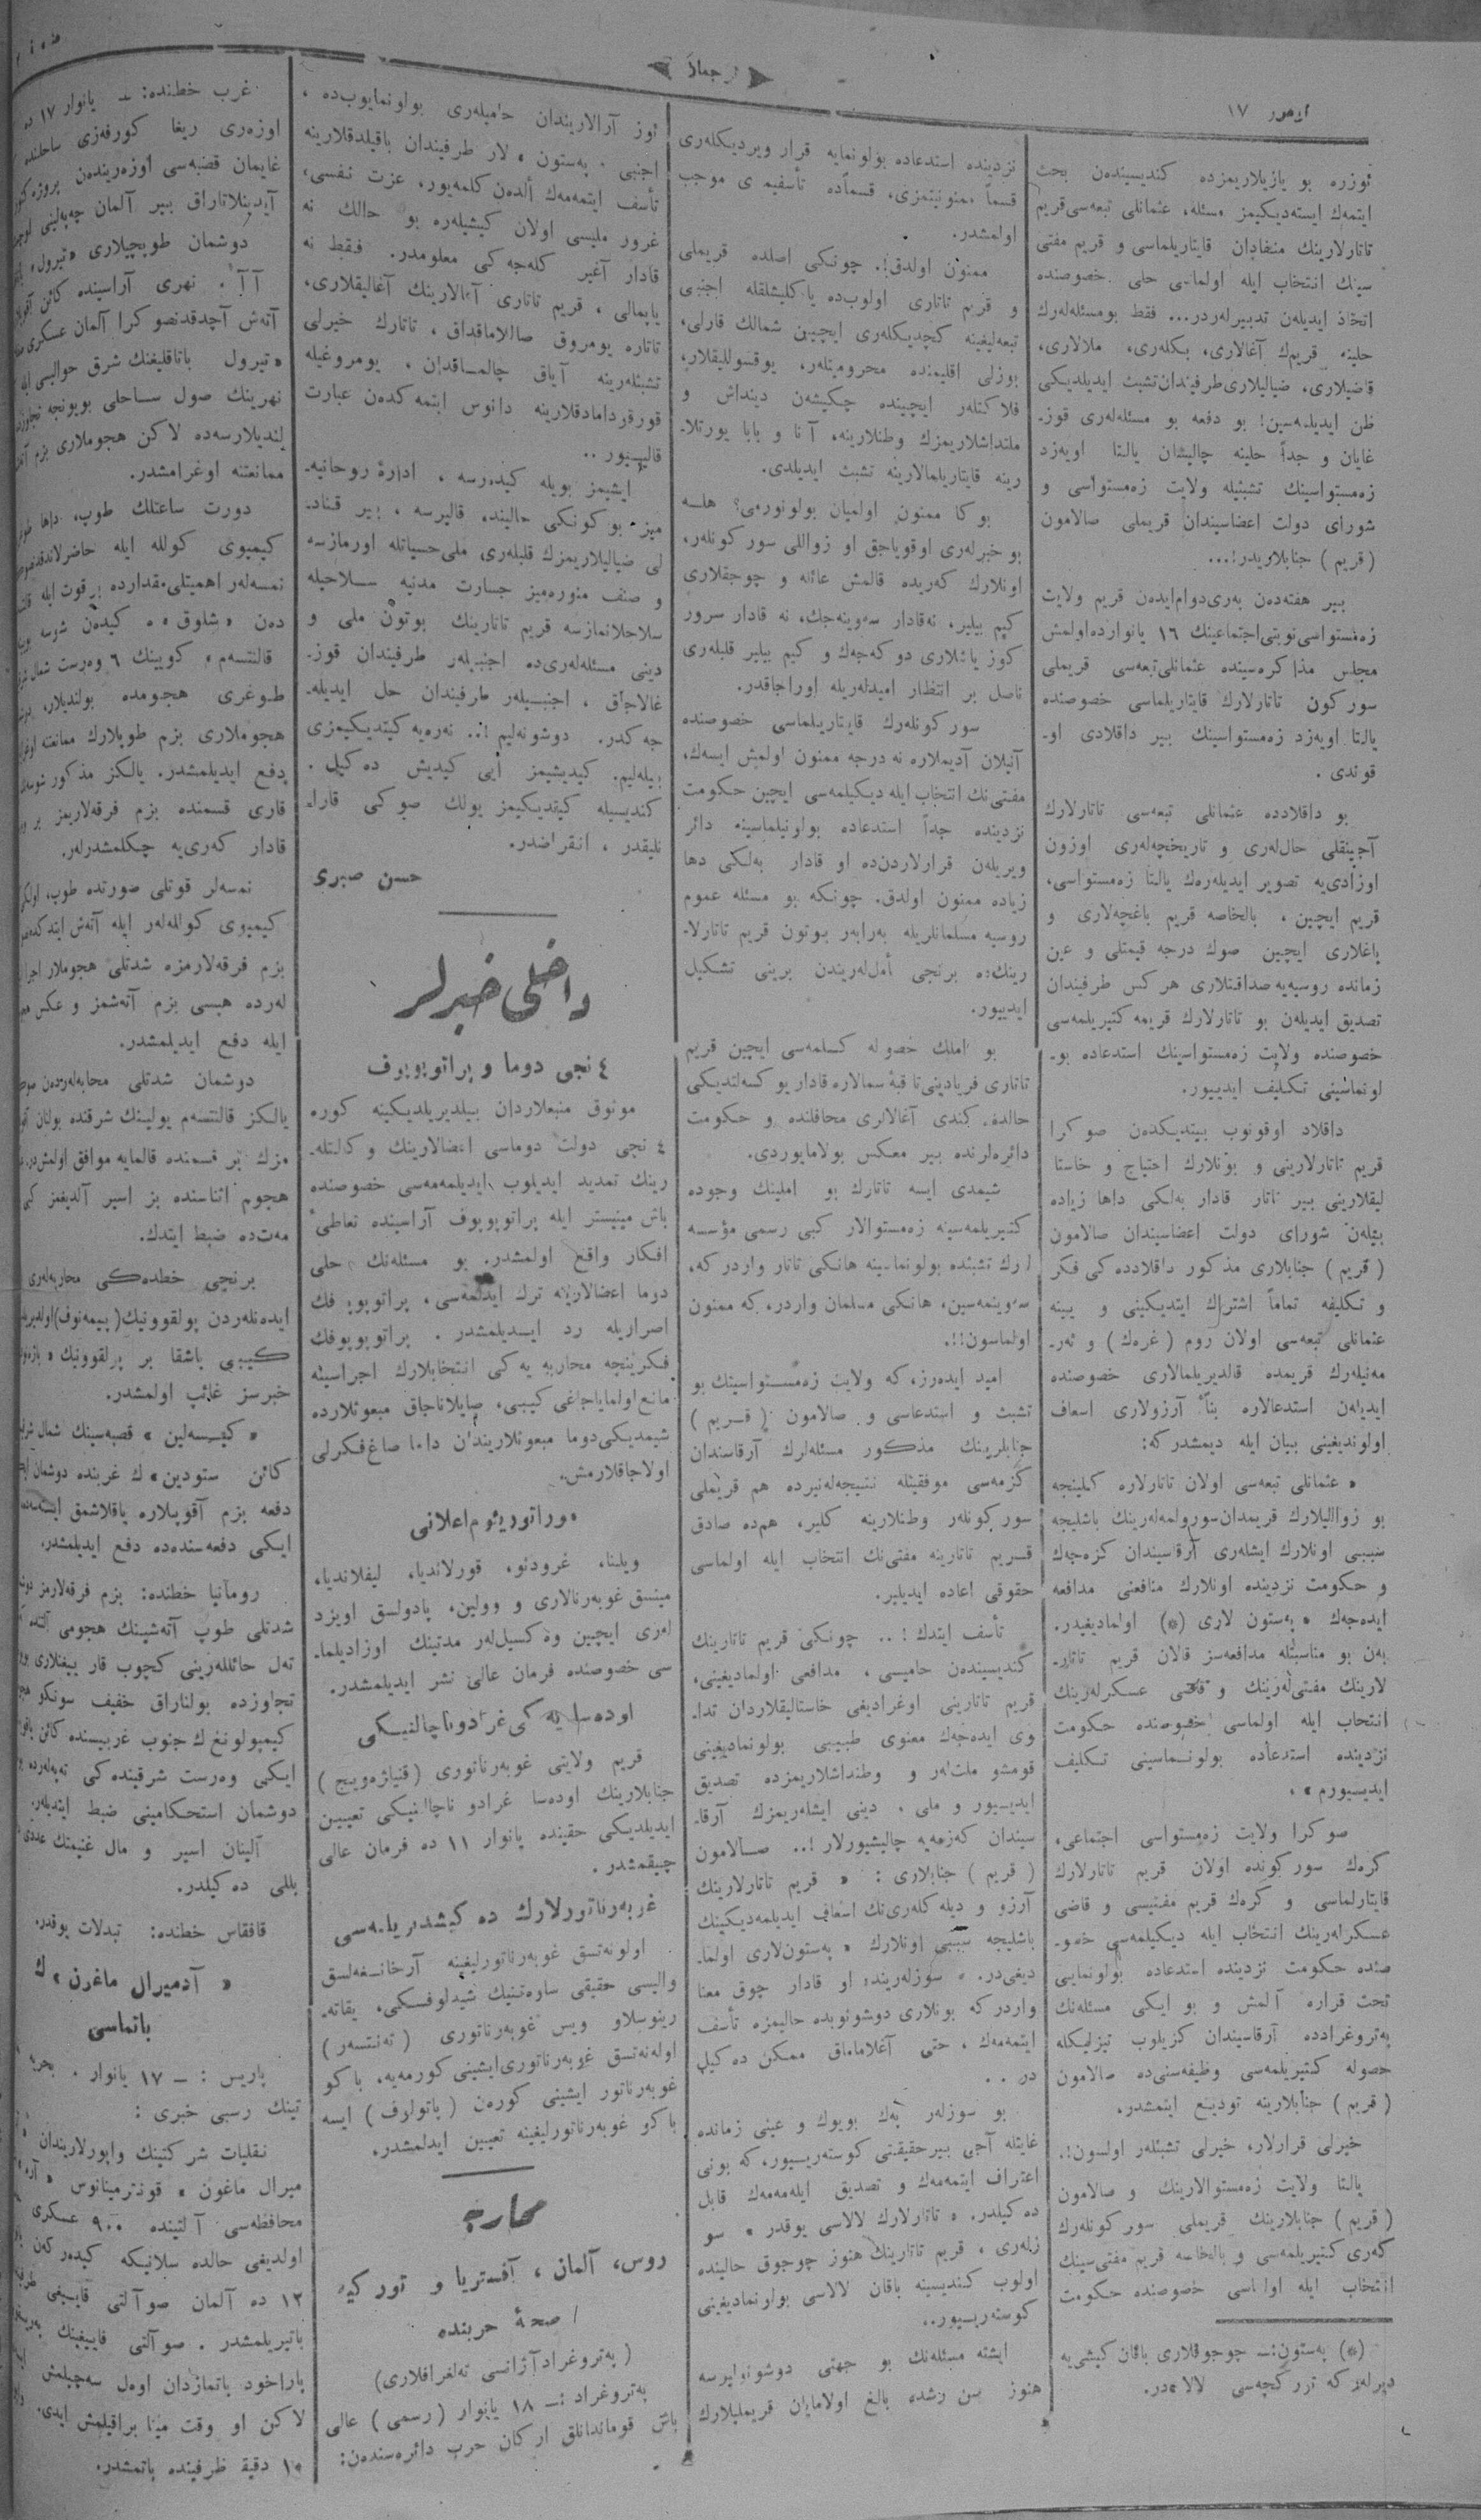 ترجمان
ئوزره بو یازیلاریمزده کندیسیندن بحث
ایتمه‌ك ایسته‌دیكیمز مسئله، عثمانلی تبعه‌سی قریم
تاتارلارینك منفادان قایتاریلماسی و قریم مفتی
سینك انتخاب ایله اولماسی حلی خصوصنده
اتخاذ ایدیلەن تدبیرلەردر... فقط بومسئله‌لەرك
حلینه قریم‌ك آغالاری، بكلەری، ملالاری،
قاضیلاری، ضیالیلاری طرفیندان تشبث ایدیلدیكی
ظن ایدیلمه‌سین! بو دفعه بو مسئله‌لەری قوز-
غایان و جداً حلینه چالیشان یالتا اویه‌زد
زه‌مستواسینك تشبثیله ولایت زه‌مستواسی و
شورای دولت اعضاسیندان قریملی صالامون
( قریم ) جنابلاریدر!...
بیر هفته‌دەن بەری‌دوام‌ایدەن قریم ولایت
زه‌مستواسی نوبتی‌اجتماعینك ١٦ یانوارده‌اولمش
مجلس مذاكره‌سینده عثمانلی‌تبعه‌سی قریملی
سوركون تاتارلارك قایتاریلماسی خصوصنده
یالتا اویه‌زد زه‌مستواسینك بیر داقلادی او-
قوندی .
بو داقلادده عثمانلی تبعه‌سی تاتارلارك
آجینقلی حال‌لەری و تاریخچه‌لەری اوزون
اوزادی‌یه تصویر ایدیلەرەك یالتا زه‌مستواسی،
قریم ایچین ، بالخاصه قریم باغچه‌لاری و
باغلاری ایچین صوك درجه قیمتلی و عین
زمانده روسیه‌یه صداقتلاری هركس طرفیندان
تصدیق ایدیلەن بو تاتارلارك قریمه كتیریلمه‌سی
خصوصنده ولایت زه‌مستواسینك استدعاده بو-
لونماسینی تكلیف ایدییور.
داقلاد اوقونوب بیتدیكدەن صوكرا
قریم تاتارلارینی و بونلارك احتیاج و خاستا
لیقلارینی بیر تاتار قادار بەلكی داها زیاده
بیلەن شورای دولت اعضاسیندان صالامون
( قریم ) جنابلاری مذكور داقلادده‌كی فكر
و تكلیفه تماماً اشتراك ایتدیكینی و یینه
عثمانلی تبعه‌سی اولان روم ( غرەك ) و ئەر-
مەنیلەرك قریمده قالدیریلمالاری خصوصنده
ایدیلەن استدعالاره بناً آرزولاری اسعاف
اولوندیغینی بیان ایله دیمشدركه:
« عثمانلی تبعه‌سی اولان تاتارلاره كلینجه
بو زوالیلارك قریمدان‌سورولمه‌لەرینك باشلیجه
سببی اونلارك ایشلەری آرقاسیندان كزەجەك
و حكومت نزدینده اونلارك منافعنی مدافعه
ایده‌جەك « پەستون لاری (*) اولمادیغیدر.
بەن بو مناسبتله مدافعه‌سز قالان قریم تاتار-
لارینك مفتی‌لەرینك و قاضی عسكرلەرینك
انتخاب ایله اولماسی خصوصنده حكومت
نزدینده استدعاده بولونماسینی تكلیف
ایدییورم» .
صوكرا ولایت زه‌مستواسی اجتماعی،
كرەك سوركونده اولان قریم تاتارلارك
قایتارلماسی و كرەك قریم مفتیسی و قاضی
عسكرلەرینك انتخاب ایله دیكیلمه‌سی خصو-
صنده حكومت نزدینده استدعاده بولونمایی
تحت قراره آلمش و بو ایكی مسئله‌نك
پەتروغرادده آرقاسیندان كزیلوب تیزلیكله
حصوله كتیریلمه‌سی وظیفه‌سنی‌ده صالامون
( قریم ) جنابلارینه تودیع ایتمشدر.
خیرلی قرارلار، خیرلی تشبثلەر اولسون!.
یالتا ولایت زه‌مستوالارینك و صالامون
( قریم ) جنابلارینك قریملی سوركونلەرك
كەری كتیریلمه‌سی و بالخاسه قریم مفتی‌سینك
انتخاب ایله اولماسی خصوصنده حكومت
(*) پەستون:ــ چوجوقلاری باقان كیشی‌یه
دیرلەر كه تورکچه‌سی لالا در.
نزدینده استدعاده بولونمایه قرار ویردیكلەری
قسماً ممنونیتمزی، قسماًده تأسفیمزی موجب
اولمشدر.
ممنون اولدق!. چونكی اصلده قریملی
و قریم تاتاری اولوب‌ده یاكلیشلقله اجنبی
تبعه‌لیغینه كچدیكلەری ایچین شمالك قارلی،
بوزلی اقلیمنده محرومیتلەر، یوقسوللیقلار،
فلاكتلەر ایچینده چكیشەن دینداش و
ملتداشلاریمزك وطنلارینه، آنا و بابا یورتلا-
رینه قایتاریلمالارینه تشبث ایدیلدی.
بوكا ممنون اولمیان بولونورمی؟ هله
بو خبرلەری اوقویاجق او زواللی سوركونلەر،
اونلارك كەریده قالمش عائله و چوجقلاری
كیم بیلیر، نه‌قادار سه‌وینه‌جك، نه قادار سرور
كوز یاشلاری دوكه‌جەك و كیم بیلیر قلبلەری
ناصل بر انتظار امیدلەریله اوراجاقدر.
سوركونلەرك قایتاریلماسی خصوصنده
آتیلان آدیملاره نه درجه ممنون اولمش ایسەك،
مفتی‌نك انتخاب ایله دیكیلمه‌سی ایچین حكومت
نزدینده جداً استدعاده بولونیلماسینه دائر
ویریلەن قرارلاردن‌ده او قادار بەلكی دها
زیاده ممنون اولدق. چونكه بو مسئله عموم
روسیه مسلمانلریله بەرابەر بوتون قریم تاتارلا-
رینك‌ده برنجی أمل‌لەریندن برینی تشكیل
ایدییور.
بو املك حصوله كسلمه‌سی ایچین قریم
تاتاری فریادینی‌تا قبهٔ سمالاره قادار یوكسەلتدیكی
حالده، كندی آغالاری محافلنده و حكومت
دائره‌لرنده بیر معكس بولامایوردی.
شیمدی ایسه تاتارك بو املینك وجوده
كتیریلمه‌سینه زه‌مستوالار كبی رسمی مؤسسه
لرك تشبثده بولونماسینه هانكی تاتار واردر كه،
سه‌وینمه‌سین، هانكی مسلمان واردر، كه ممنون
اولماسون!!.
امید ایدەرز، كه ولایت زه‌مستواسینك بو
تشبث و استدعاسی و صالامون ( قریم )
جنابلرینك مذكور مسئله‌لرك آرقاسندان
كزمه‌سی موفقیتله نتیجه‌لەنیرده هم قریملی
سوركونلەر وطنلارینه كلیر، هم‌ده صادق
قریم تاتارینه مفتی‌نك انتخاب ایله اولماسی
حقوقی اعاده ایدیلیر.
تأسف ایتدك ! .. چونكی قریم تاتارینك
كندیسیندەن حامیسی ، مدافعی اولمادیغینی،
قریم تاتارینی اوغرادیغی خاستالیقلاردان تدا-
وی ایده‌جەك معنوی طبیبی بولونمادیغینی
قومشو ملت‌لەر و وطنداشلاریمزده تصدیق
ایدییور و ملی ، دینی ایشلەریمزك آرقا-
سیندان كەزمه‌یه چالیشیورلار !.. صالامون
( قریم ) جنابلاری : « قریم تاتارلارینك
آرزو و دیله‌كلەری‌نك اسعاف ایدیلمه‌دیكینك
باشلیجه سببی اونلارك « پەستون‌لاری اولما-
دیغی‌در. » سوزلەرینده او قادار چوق معنا
واردر كه بونلاری دوشونوبده حالیمزه تأسف
ایتمه‌مەك ، حتی آغلاماماق ممكن دەكیل
در . .
بو سوزلەر پەك بویوك و عینی زمانده
غایتله آجی بیرحقیقتی كوستەرییور، كه بونی
اعتراف ایتمه‌مەك و تصدیق ایله‌مه‌مەك قابل
دەكیلدر. « تاتارلارك لالاسی یوقدر » سو
زلەری ، قریم تاتارینك هنوز چوجوق حالینده
اولوب كندیسینه باقان لالاسی بولونمادیغینی
كوستەرییور..
ایشته مسئله‌نك بو جهتی دوشونولیرسه
هنوز سن رشده بالغ اولامایان قریملیلارك
ئوز آرالاریندان حامیلەری بولونمایوب‌ده ،
اجنبی « پەستون » لار طرفیندان باقیلدقلارینه
تأسف ایتمه‌مەك ألدەن كلمەیور، عزت نفسی،
غرور ملیسی اولان كیشیلەره بو حالك نه
قادار آغیر كله‌جەكی معلومدر. فقط نه
یاپمالی ، قریم تاتاری آغالارینك آغالیقلاری،
تاتاره یومروق صالاماقداق ، تاتارك خیرلی
تشبثلەرینه آیاق چالماقدان ، یومروغیله
قورقوردامادقلارینه دانوس ایتمه‌كدەن عبارت
قالییور ..
ایشیمز بویله كیدەرسه ، ادارهٔ روحانیه-
میز بوكونكی حالینده قالیرسه ، بیر قناد-
لی ضیالیلاریمزك قلبلەری ملی‌حسیاتله اورمازسه
و صنف منوره‌میز جسارت مدنیه سلاحیله
سلاحلانمازسه قریم تاتارینك بوتون ملی و
دینی مسئله‌لەری‌ده اجنبیلەر طرفیندان قوز-
غالاجاق ، اجنبیلەر طرفیندان حل ایدیله-
جەكدر. دوشونه‌لیم !.. نەره‌یه كیتدیكیمزی
بیله‌لیم. كیدیشیمز أیی كیدیش دەكیل .
كندیسیله كیتدیكیمز یولك صوكی قارا-
نلیقدر ، انقراضدر.
حسن صبری
داخلی خبرلر
٤ نجی دوما و پراتوپوپوف
موثوق منبعلاردان بیلدیریلدیكینه كوره
٤ نجی دولت دوماسی اعضالارینك وكالتله-
رینك تمدید ایدیلوب ایدیلمه‌مه‌سی خصوصنده
باش مینیستر ایله پراتوپوپوف آراسینده تعاطیٔ
افكار واقع اولمشدر. بو مسئله‌نك حلی
دوما اعضالارینه ترك ایدلمه‌سی، پراتوپوپوفك
اصراریله رد ایدیلمشدر . پراتوپوپوفك
فكرینچه محاربه یه‌كی انتخابلارك اجراسینه
مانع اولمایاجاغی كیبی، صایلاناجاق مبعوثلارده
شیمدیكی‌دوما مبعوثلاریندان داها صاغ‌فكرلی
اولاجاقلارمش.
موراتوریئوم‌اعلانی
ویلنا، غرودنو، قورلاندیا، لیفلاندیا،
مینسق غوبەرنالاری و وولین، پادولسق اویزد
لەری ایچین وەكسیل‌لەر مدتینك اوزادیلما-
سی خصوصنده فرمان عالی نشر ایدیلمشدر.
اودەسایه‌كی غرادوناچالنیكی
قریم ولایتی غوبەرناتوری (قنیاژەویچ)
جنابلارینك اودەسا غرادوناچالنیكی تعیین
ایدیلدیكی حقینده یانوار ١١ ده فرمان عالی
چیقمشدر .
غوبەرناتورلارك دەكیشدیریلمه‌سی
اولونه‌تسق غوبەرناتورلیغینه آرخانغه‌لسق
والیسی حقیقی ساوەتنیك شیدلوفسكی، یقاته-
رینوسلاو ویس غوبەرناتوری ( تەنتسەر)
اولەنەتسق غوبەرناتوری‌ایشینی كورمه‌یه، باكو
غوبەرناتور ایشینی كورەن ( پاتولوف ) ایسه
باكو غوبەرناتورلیغینه تعیین ایدلمشدر.
محاربه
روس، آلمان ، آفستریا و توركیه
صحهٔ حربنده
( پەتروغراد آژانسی تەلغرافلاری)
پەتروغراد :ــ ١٨ یانوار ( رسمی ) عالی
باش قومانداناق اركان حرب دائره‌سندەن:
غرب خطنده: ــ یانوار ١٧ ده
اوزەری ریغا كورفەزی ساحلنده
غایمان قضبه‌سی اوزەریندەن پروژه‌كتور
آیدینلاتاراق بیر آلمان جەپەلینی
دوشمان طوپچیلاری «تیرول»
آ آ . نهری آراسینده كائن
آتەش آچدقدنصوكرا آلمان عسكری
« تیرول باتاقلیغنك شرق حوالیسی ایله
نهرینك صول ساحلی بویونجه
لیندیلارسه‌ده لاكن هجوملاری بزم
ممانعتنه اوغرامشدر.
دورت ساعتلك طوپ، داها
كیمیوی كولله ایله حاضرلاندقدنصوكرا
نمسه‌لەر اهمیتلی‌مقدارده برقوت ایله
دەن « شلوق » ه كیدەن شوسه
قالنتسەم، كویینك ٦ وەرست شمال
طوغری هجومده بولندیلار،
هجوملاری بزم طوپلارك ممانعتنه
دفع ایدیلمشدر. یالكز مذكور شوسه‌نك
قاری قسمنده بزم فرقه‌لاریمز بر
قادار كەری‌یه چكلمشدرلەر.
نمسه‌لر قوتلی صورتده طوپ،
كیمیوی كولله‌لەر ایله آتەش ایتدكدە
بزم فرقه‌لارمزه شدتلی هجوملار
لەرده هپسی بزم آتەشمز و عكس
ایله دفع ایدیلمشدر.
دوشمان شدتلی محابه‌لەردەن
یالكز قالنتسەم یولینك شرقنده بولنان
مزك بر قسمنده قالمایه موافق اولمش‌در.
هجوم اثناسنده بز اسیر آلدیغمز كبی
مەت‌ده ضبط ایتدك.
برنجی خطده‌كی محاربه‌لەری
ایدەنلەردن پولقوونیك(پیمەنوف)
كیبی باشقا بر پولقوونیك
خبرسز غائب اولمشدر.
« كیرسەلین » قصبه‌سینك شمال
كائن ستودین» ك غربنده دوشمان
دفعه بزم آقوپلاره یاقلاشمق ایسته‌
ایكی دفعه‌سنده‌ده دفع ایدیلمشدر.
رومآنیا خطنده: بزم فرقه‌لارمز
شدتلی طوپ آتەشینك هجومی
تەل حائللەرینی كچوب قار ییغنلاری
تجاوزده بولناراق خفیف
كیمپولونغ‌ك جنوب غربیسنده كائن
ایكی وەرست شرقینده‌كی تەپه‌لەرده
دوشمان استحكامینی ضبط ایتدیلەر.
آلینان اسیر و مال غنیمتك عددی
بللی دەكیلدر.
قافقاس خطنده: تبدلات یوقدر.
« آدمیرال ماغون» ك
باتماسی
پاریس : ــ ١٧ یانوار . بحریه
تینك رسمی خبری :
نقلیات شركتینك واپورلاریندان
میرال ماغون » قونترمینانوس
محافظه‌سی آلتینده ٩٠٠ عسكری
اولدیغی حالده سلانیكه كیدەركەن
١٢ ده آلمان صوآلتی قاییغی
باتیریلمشدر . صوآلتی قاییغینك
پاراخود باتمازدان اوەل سەچیلمش
لاكن او وقت مینا براقیلمش ایدی.
١٠ دقیقه ظرفینده باتمشدر.